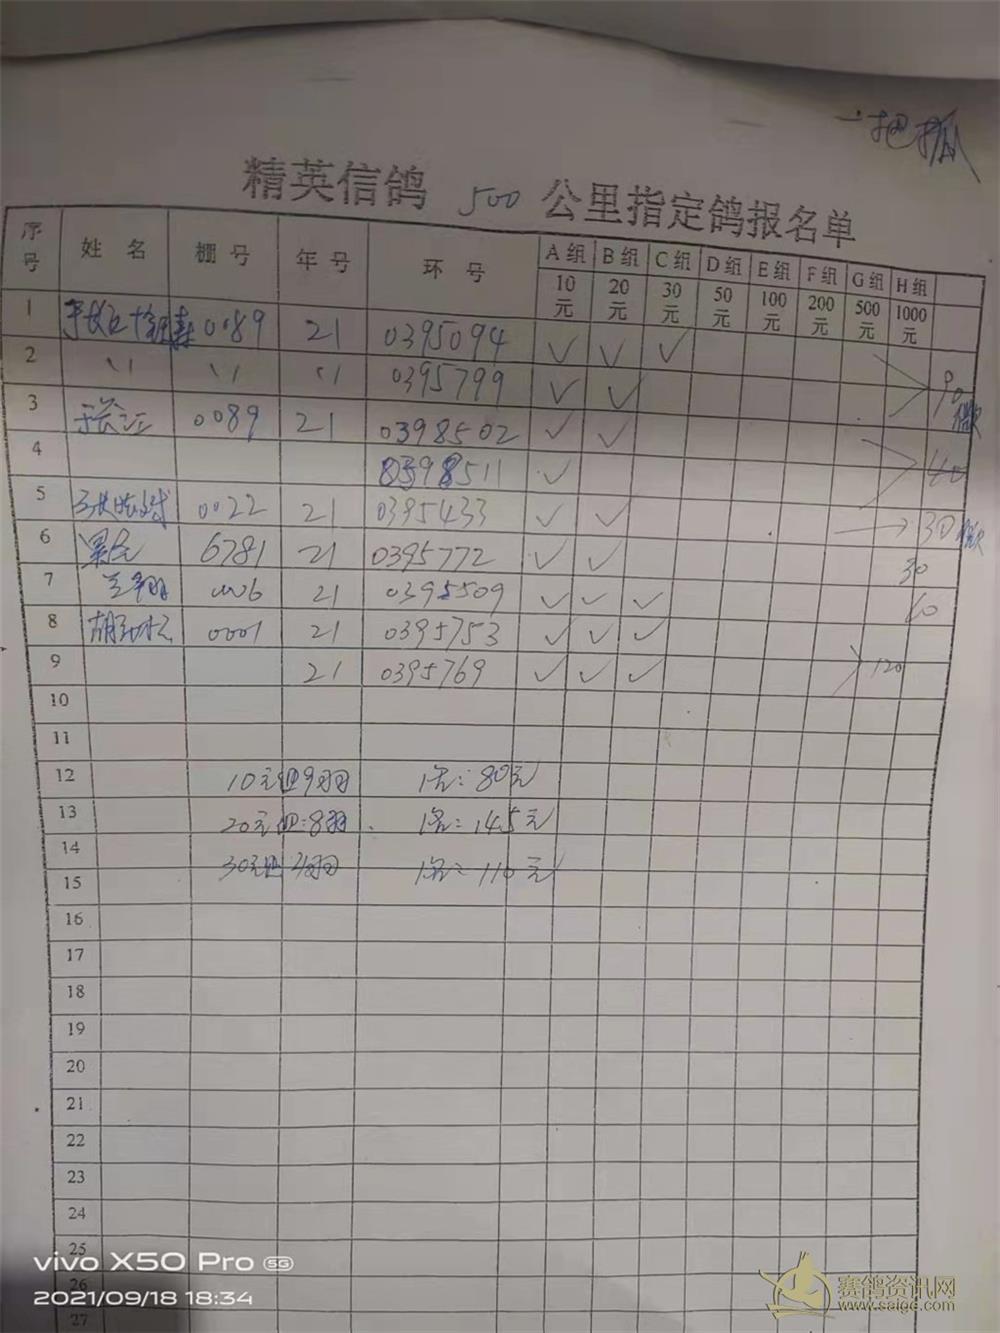 一把抓
精英信鸽 500 公里指定鸽报名单
序号 姓名 棚号 年号 环号 A组 B组 C组 D组 E组 F组 G组 H组
10元 20元 30元 50元 100元 200元 500元 1000元
1 0089 21 0395094 ✓ ✓ ✓
2 〃 〃 〃 0395799 ✓ ✓ 90
3 于长江 0089 21 0398502 ✓ ✓
4 0398511 ✓ 40
5 0022 21 0395433 ✓ ✓ 30
6 6781 21 0395772 ✓ ✓ 30
7 兰翔 21 0395509 ✓ ✓ ✓ 60
8 0001 21 0395753 ✓ ✓ ✓
9 21 0395769 ✓ ✓ ✓ 120
10
11
12 10元组9羽 1名:80元
13 20元组:8羽 1名:145元
14 30元组4羽 1名:110元
15
16
17
18
19
20
21
22
23
24
25
26
27
vivo X50 Pro 5G
2021/09/18 18:34
赛鸽资讯网
www.saige.com